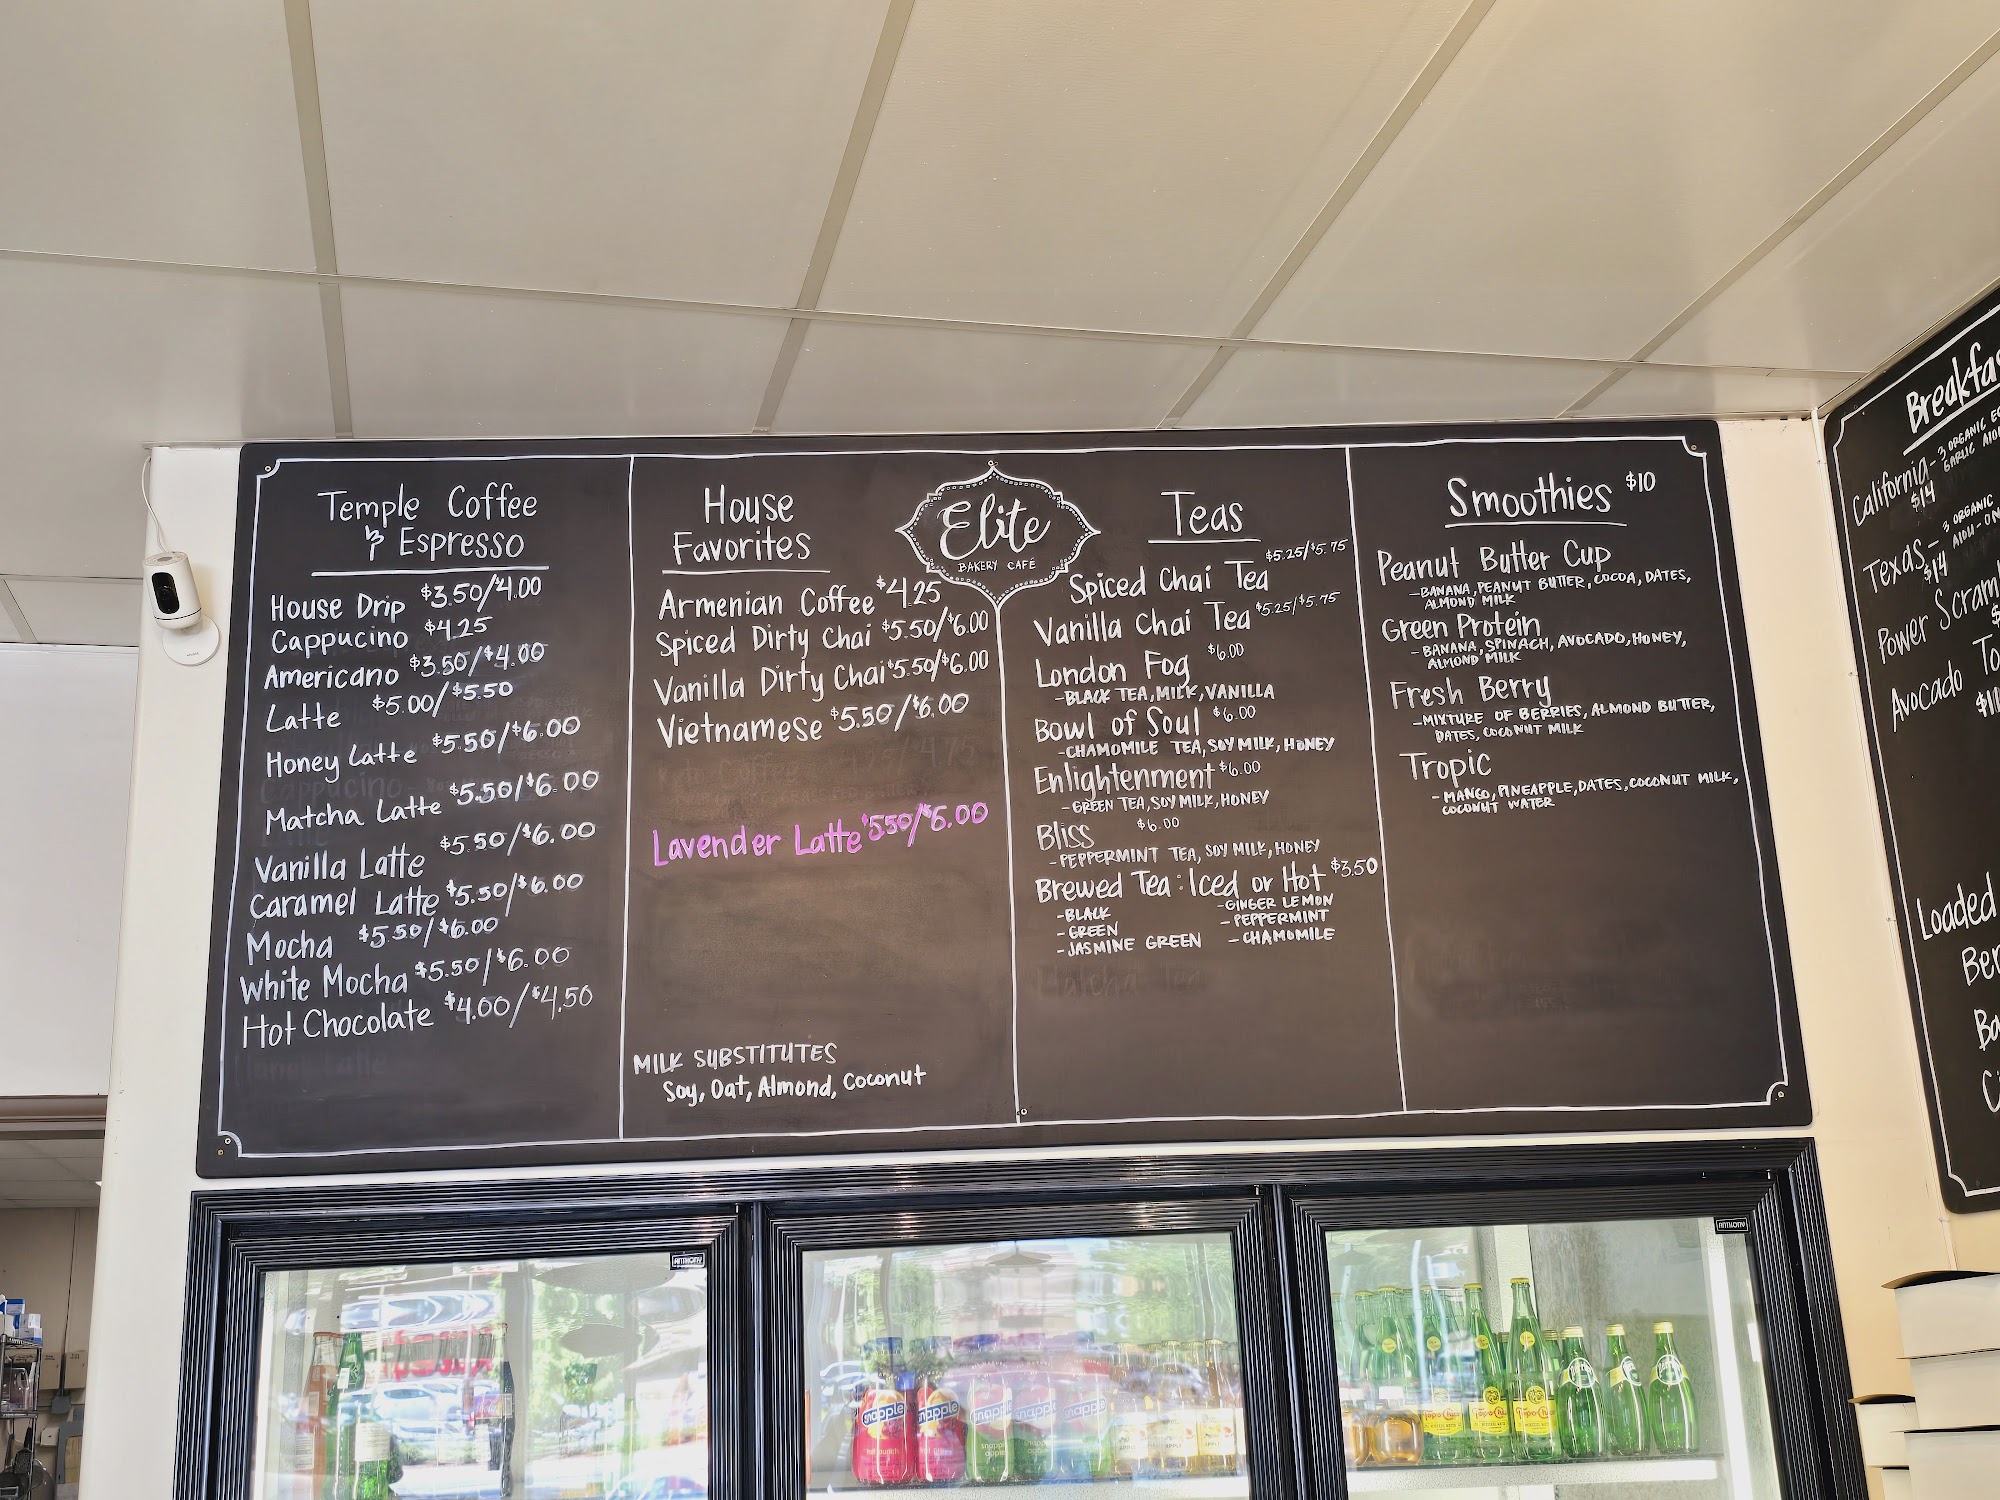 Temple Coffee
& Espresso
House Drip $3.50/$4.00
Cappucino $4.25
Americano $3.50/$4.00
Latte $5.00/$5.50
Honey Latte $5.50/$6.00
Matcha Latte $5.50/$6.00
Vanilla Latte $5.50/$6.00
Caramel Latte $5.50/$6.00
Mocha $5.50/$6.00
White Mocha $5.50/$6.00
Hot Chocolate $4.00/$4.50
House
Favorites
Armenian Coffee $4.25
Spiced Dirty Chai $5.50/$6.00
Vanilla Dirty Chai $5.50/$6.00
Vietnamese $5.50/$6.00
Lavender Latte $550/$6.00
MILK SUBSTITUTES
Soy, Oat, Almond, Coconut
Elite
BAKERY CAFÉ
Teas
Spiced Chai Tea $5.25/$5.75
Vanilla Chai Tea $5.25/$5.75
London Fog $6.00
-BLACK TEA, MILK, VANILLA
Bowl of Soul $6.00
-CHAMOMILE TEA, SOY MILK, HONEY
Enlightenment $6.00
-GREEN TEA, SOY MILK, HONEY
Bliss $6.00
-PEPPERMINT TEA, SOY MILK, HONEY
Brewed Tea: Iced or Hot $3.50
-BLACK
-GREEN
-JASMINE GREEN
-GINGER LEMON
-PEPPERMINT
-CHAMOMILE
Smoothies $10
Peanut Butter Cup
-BANANA, PEANUT BUTTER, COCOA, DATES,
ALMOND MILK
Green Protein
-BANANA, SPINACH, AVOCADO, HONEY,
ALMOND MILK
Fresh Berry
-MIXTURE OF BERRIES, ALMOND BUTTER,
DATES, COCONUT MILK
Tropic
-MANGO, PINEAPPLE, DATES, COCONUT MILK,
COCONUT WATER
Breakfa
California -3 ORGANIC
GARLIC
$14
Texas -3 ORGANIC
$14
Power Scram
Avocado To
Loaded
Ber
Ba
ANTHONY
ANTHONY
snapple
snapple
snapple
snapple
snapple
Topo Chico
Topo Chico
Topo Chico